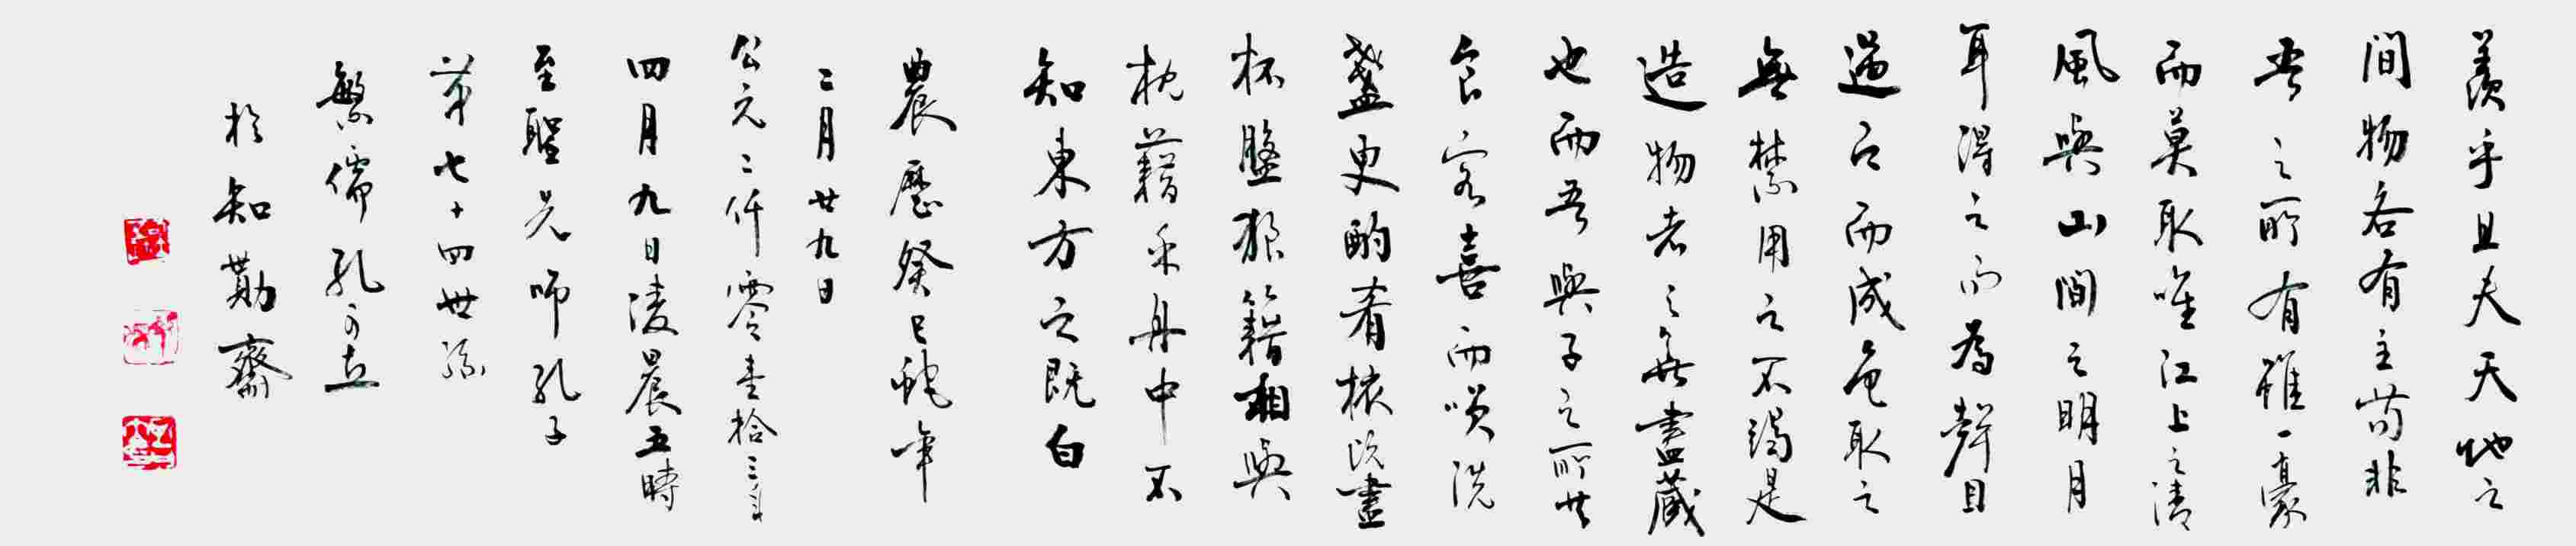 羨乎且夫天地之
間物各有主苟非
吾之所有雖一豪
而莫取唯江上之清
風與山間之明月
耳得之而為聲目
遇之而成色取之
無禁用之不竭是
造物者之無盡藏
也而吾與子之所共
食客喜而笑洗
盞更酌肴核既盡
杯盤狼籍相與
枕藉乎舟中不
知東方之既白
農歷癸巳蛇年
二月廿九日
公元二仟零壹拾三年
四月九日凌晨五時
至聖先師孔子
第七十四世孫
繁儒孔令立
於知勤齋